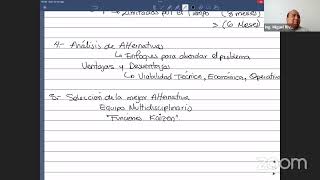 Limitados por el Tiempo (8 meses)
> (6 Meses)
4.- Análisis de Alternativas
↳ Enfoques para abordar el problema
Ventajas y Desventajas
↳ Viabilidad Técnica, Económica, Operativa
5.- Selección de la mejor Alternativa
Equipo Multidisciplinario
"Funciones Kaizen"
Ing. Miguel
zoom